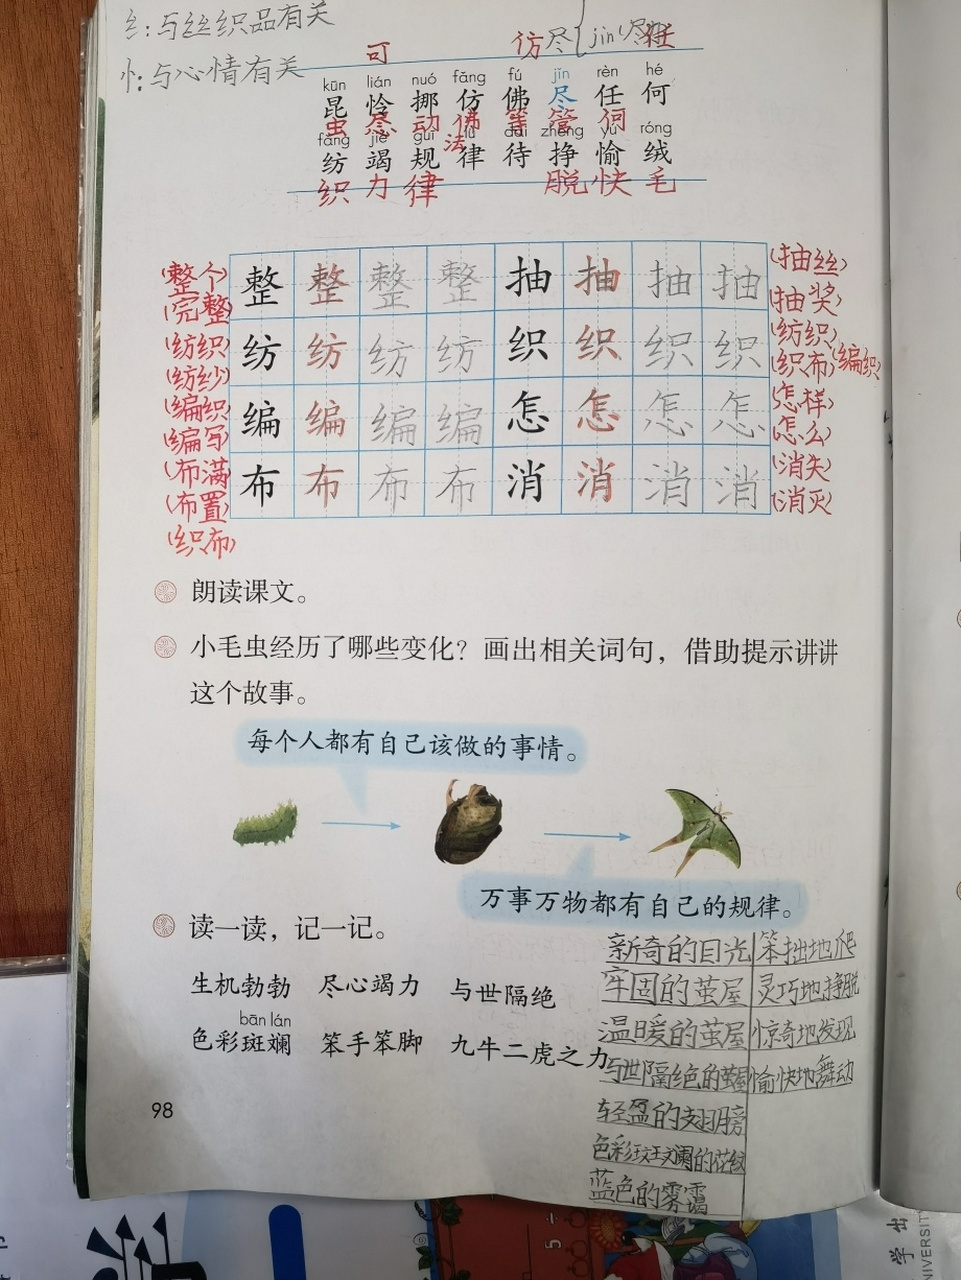 纟:与丝织品有关
忄:与心情有关
可 仿 尽 jìn
kūn lián nuó fǎng fú jǐn rèn hé
昆 怜 挪 仿 佛 尽 任 何
虫 动 佛 等 管 何
法
fǎng jié guī lǜ dài zhēng yú róng
纺 竭 规 律 待 挣 愉 绒
织 力 律 脱 快 毛
(整个) 整 整 整 整 抽 抽 抽 抽 (抽丝)
(完整) (抽奖)
(纺织) 纺 纺 纺 纺 织 织 织 织 (纺织)
(纺纱) (织布) (编织)
(编织) 编 编 编 编 怎 怎 怎 怎 (怎样)
(编写) (怎么)
(布满) 布 布 布 布 消 消 消 消 (消失)
(布置) (消灭)
(织布)
朗读课文。
小毛虫经历了哪些变化?画出相关词句,借助提示讲讲
这个故事。
每个人都有自己该做的事情。
万事万物都有自己的规律。
读一读,记一记。
生机勃勃 尽心竭力 与世隔绝
bān lán
色彩斑斓 笨手笨脚 九牛二虎之力
新奇的目光 笨拙地爬
牢固的茧屋 灵巧地挣脱
温暖的茧屋 惊奇地发现
与世隔绝的茧屋 愉快地舞动
轻盈的翅膀
色彩斑斓的花纹
蓝色的雾霭
98